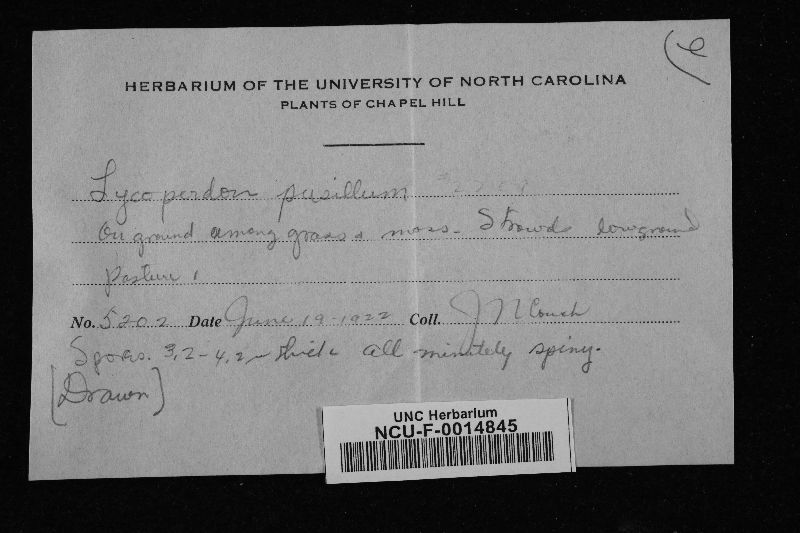 HERBARIUM OF THE UNIVERSITY OF NORTH CAROLINA
PLANTS OF CHAPEL HILL
Lycoperdon pusillum
On ground among grass & moss - Strowds lowground
pasture.
No. 5202 Date June 19-1922 Coll. J N Couch
Spores. 3,2-4,2 thick all minutely spiny.
[Drawn]
UNC Herbarium
NCU-F-0014845